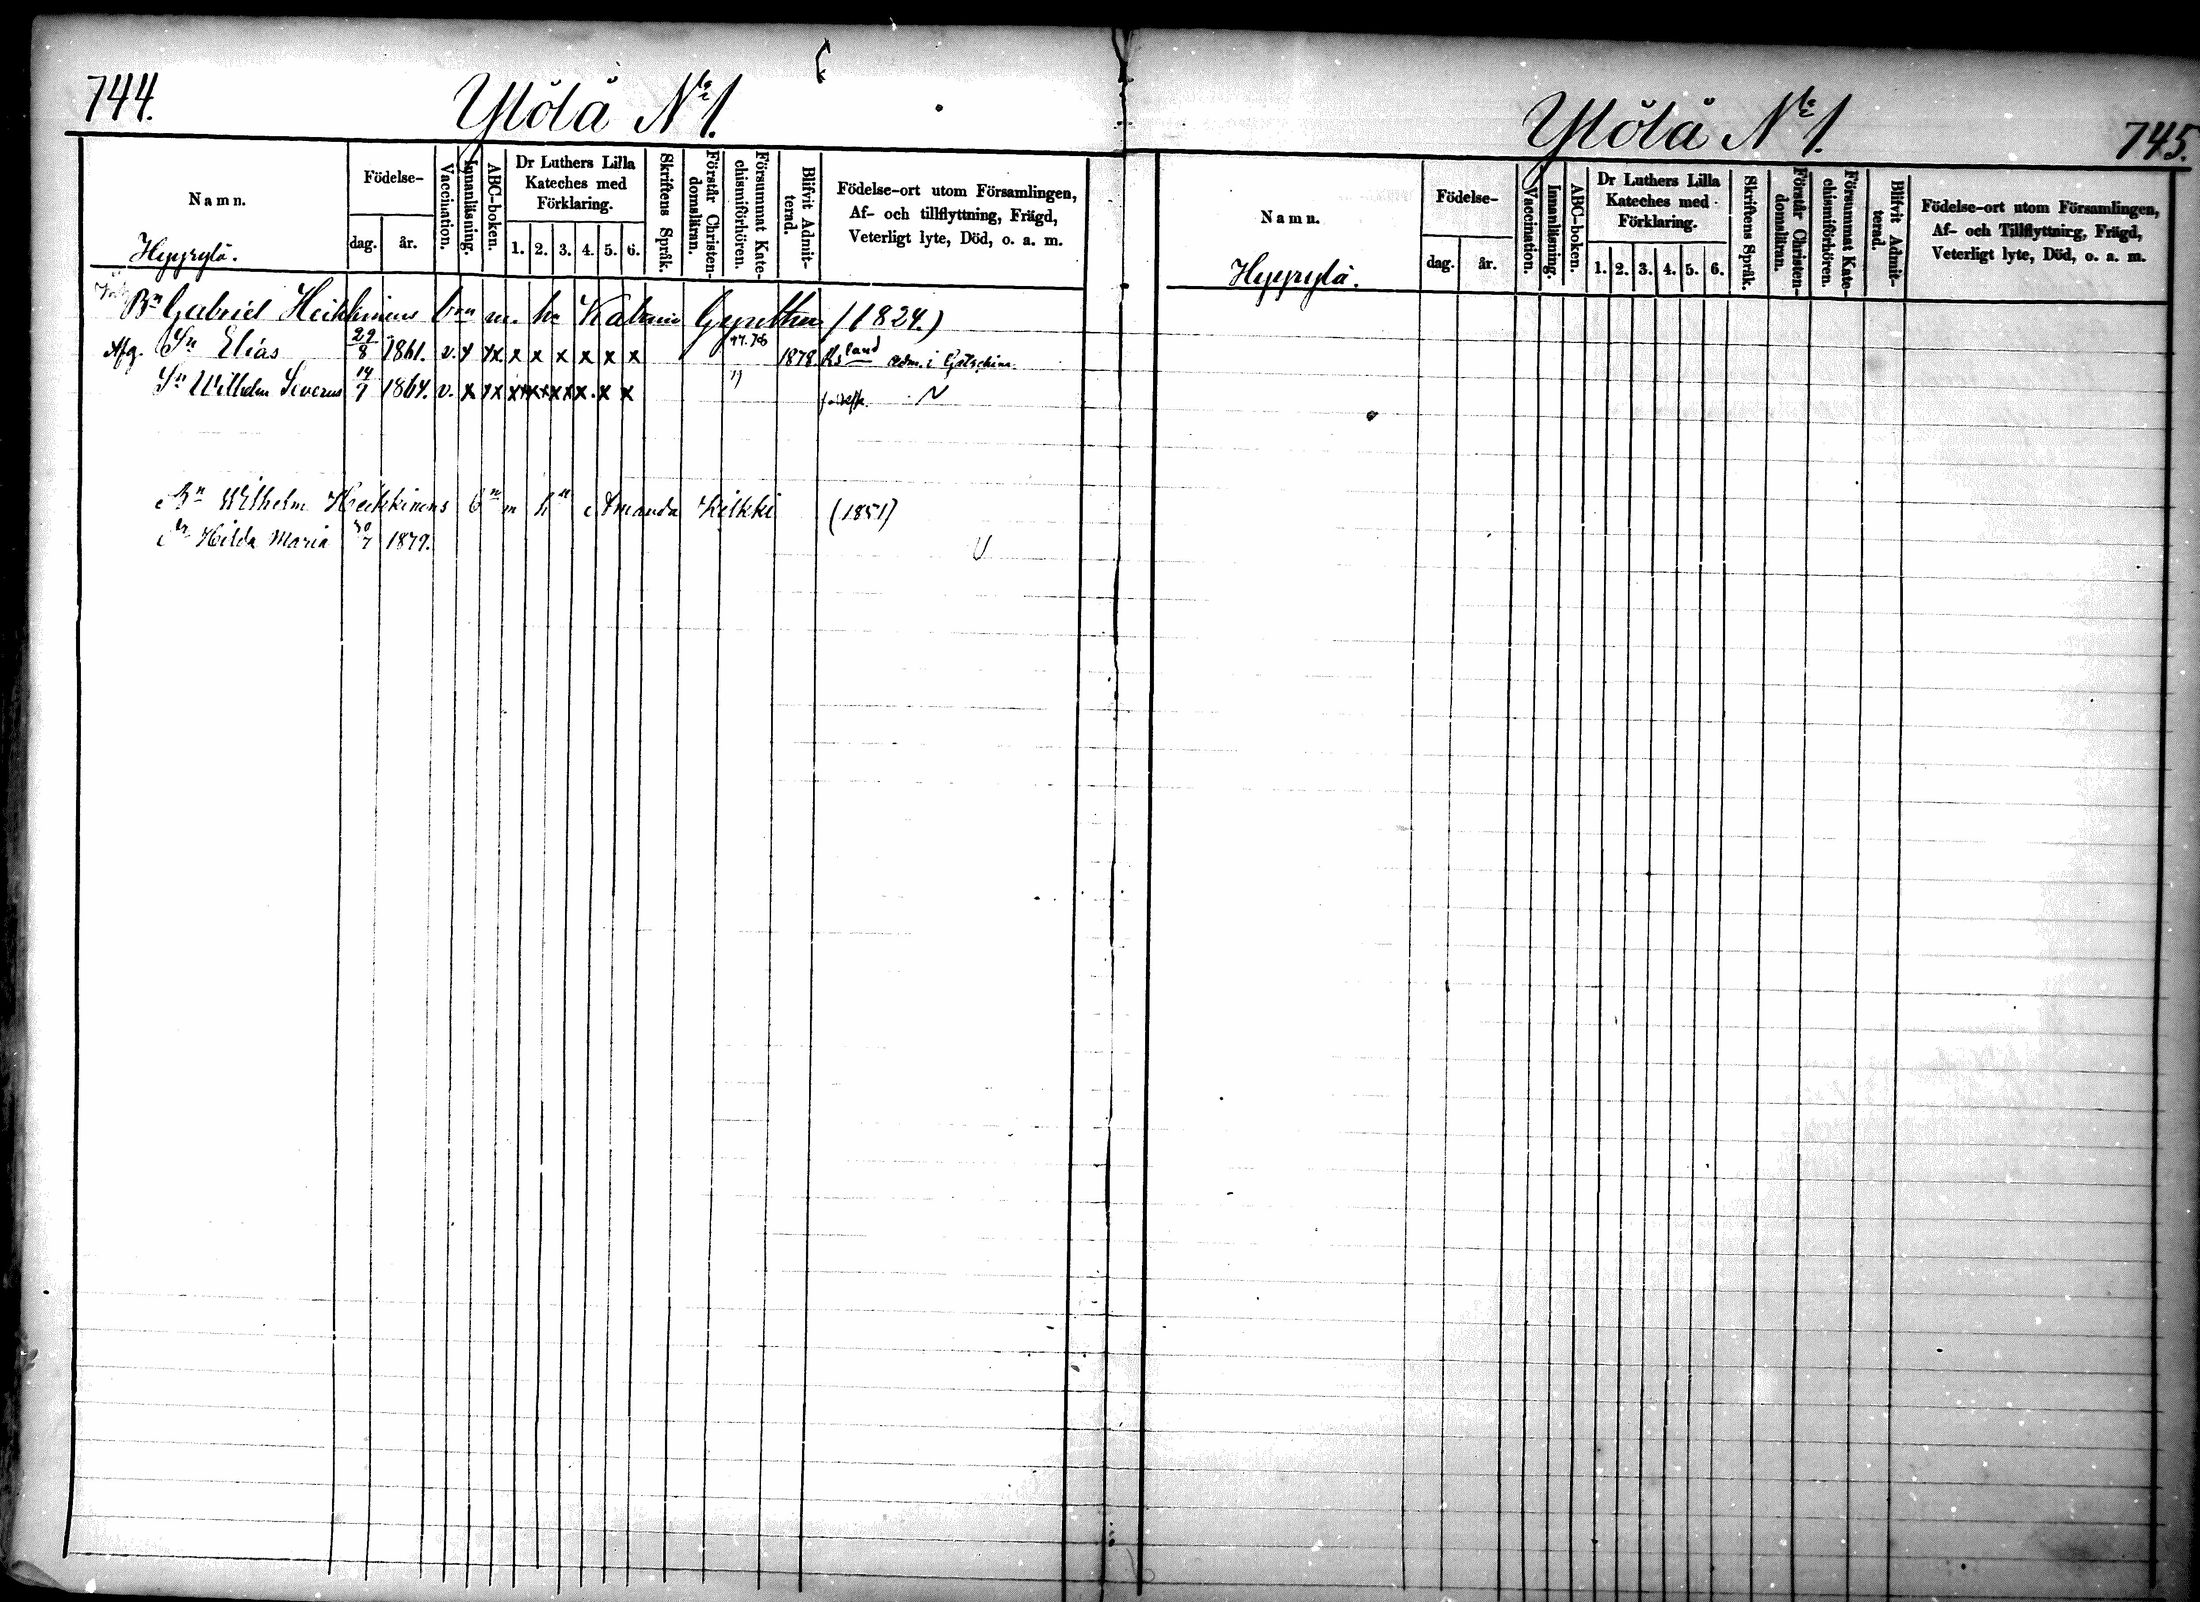 744.
Ylölä N:o 1.
Namn.
Födelse-
dag.
år.
Vaccination.
Innanläsning.
ABC-boken.
Dr Luthers Lilla
Kateches med
Förklaring.
1. 2. 3. 4. 5. 6.
Skriftens Språk.
Förstår Christen-
domsläran.
Försummat Kate-
chismiförhören.
Blifvit Admit-
terad.
Födelse-ort utom Församlingen,
Af- och tillflyttning, Frägd,
Veterligt lyte, Död, o. a. m.
Hyyrylä.
Bn Gabriel Heikkinens bn m. hu (1824.)
Afg. Sn Elias 29/8 1861. v. x xx x x x x x x 77.78 1878 land adm. i
Sn Wilhelm Severus 14/7 1864. v. x xx
Bn Wilhelm Heikkinens bn m hu Amanda Kilkki (1851)
Dr Hilda Maria 30/7 1879.
Ylölä N:o 1.
745.
Namn.
Födelse-
dag.
år.
Vaccination.
Innanläsning.
ABC-boken.
Dr Luthers Lilla
Kateches med
Förklaring.
1. 2. 3. 4. 5. 6.
Skriftens Språk.
Förstår Christen-
domsläran.
Försummat Kate-
chismiförhören.
Blifvit Admit-
terad.
Födelse-ort utom Församlingen,
Af- och Tillflyttning, Frägd,
Veterligt lyte, Död, o. a. m.
Hyyrylä.